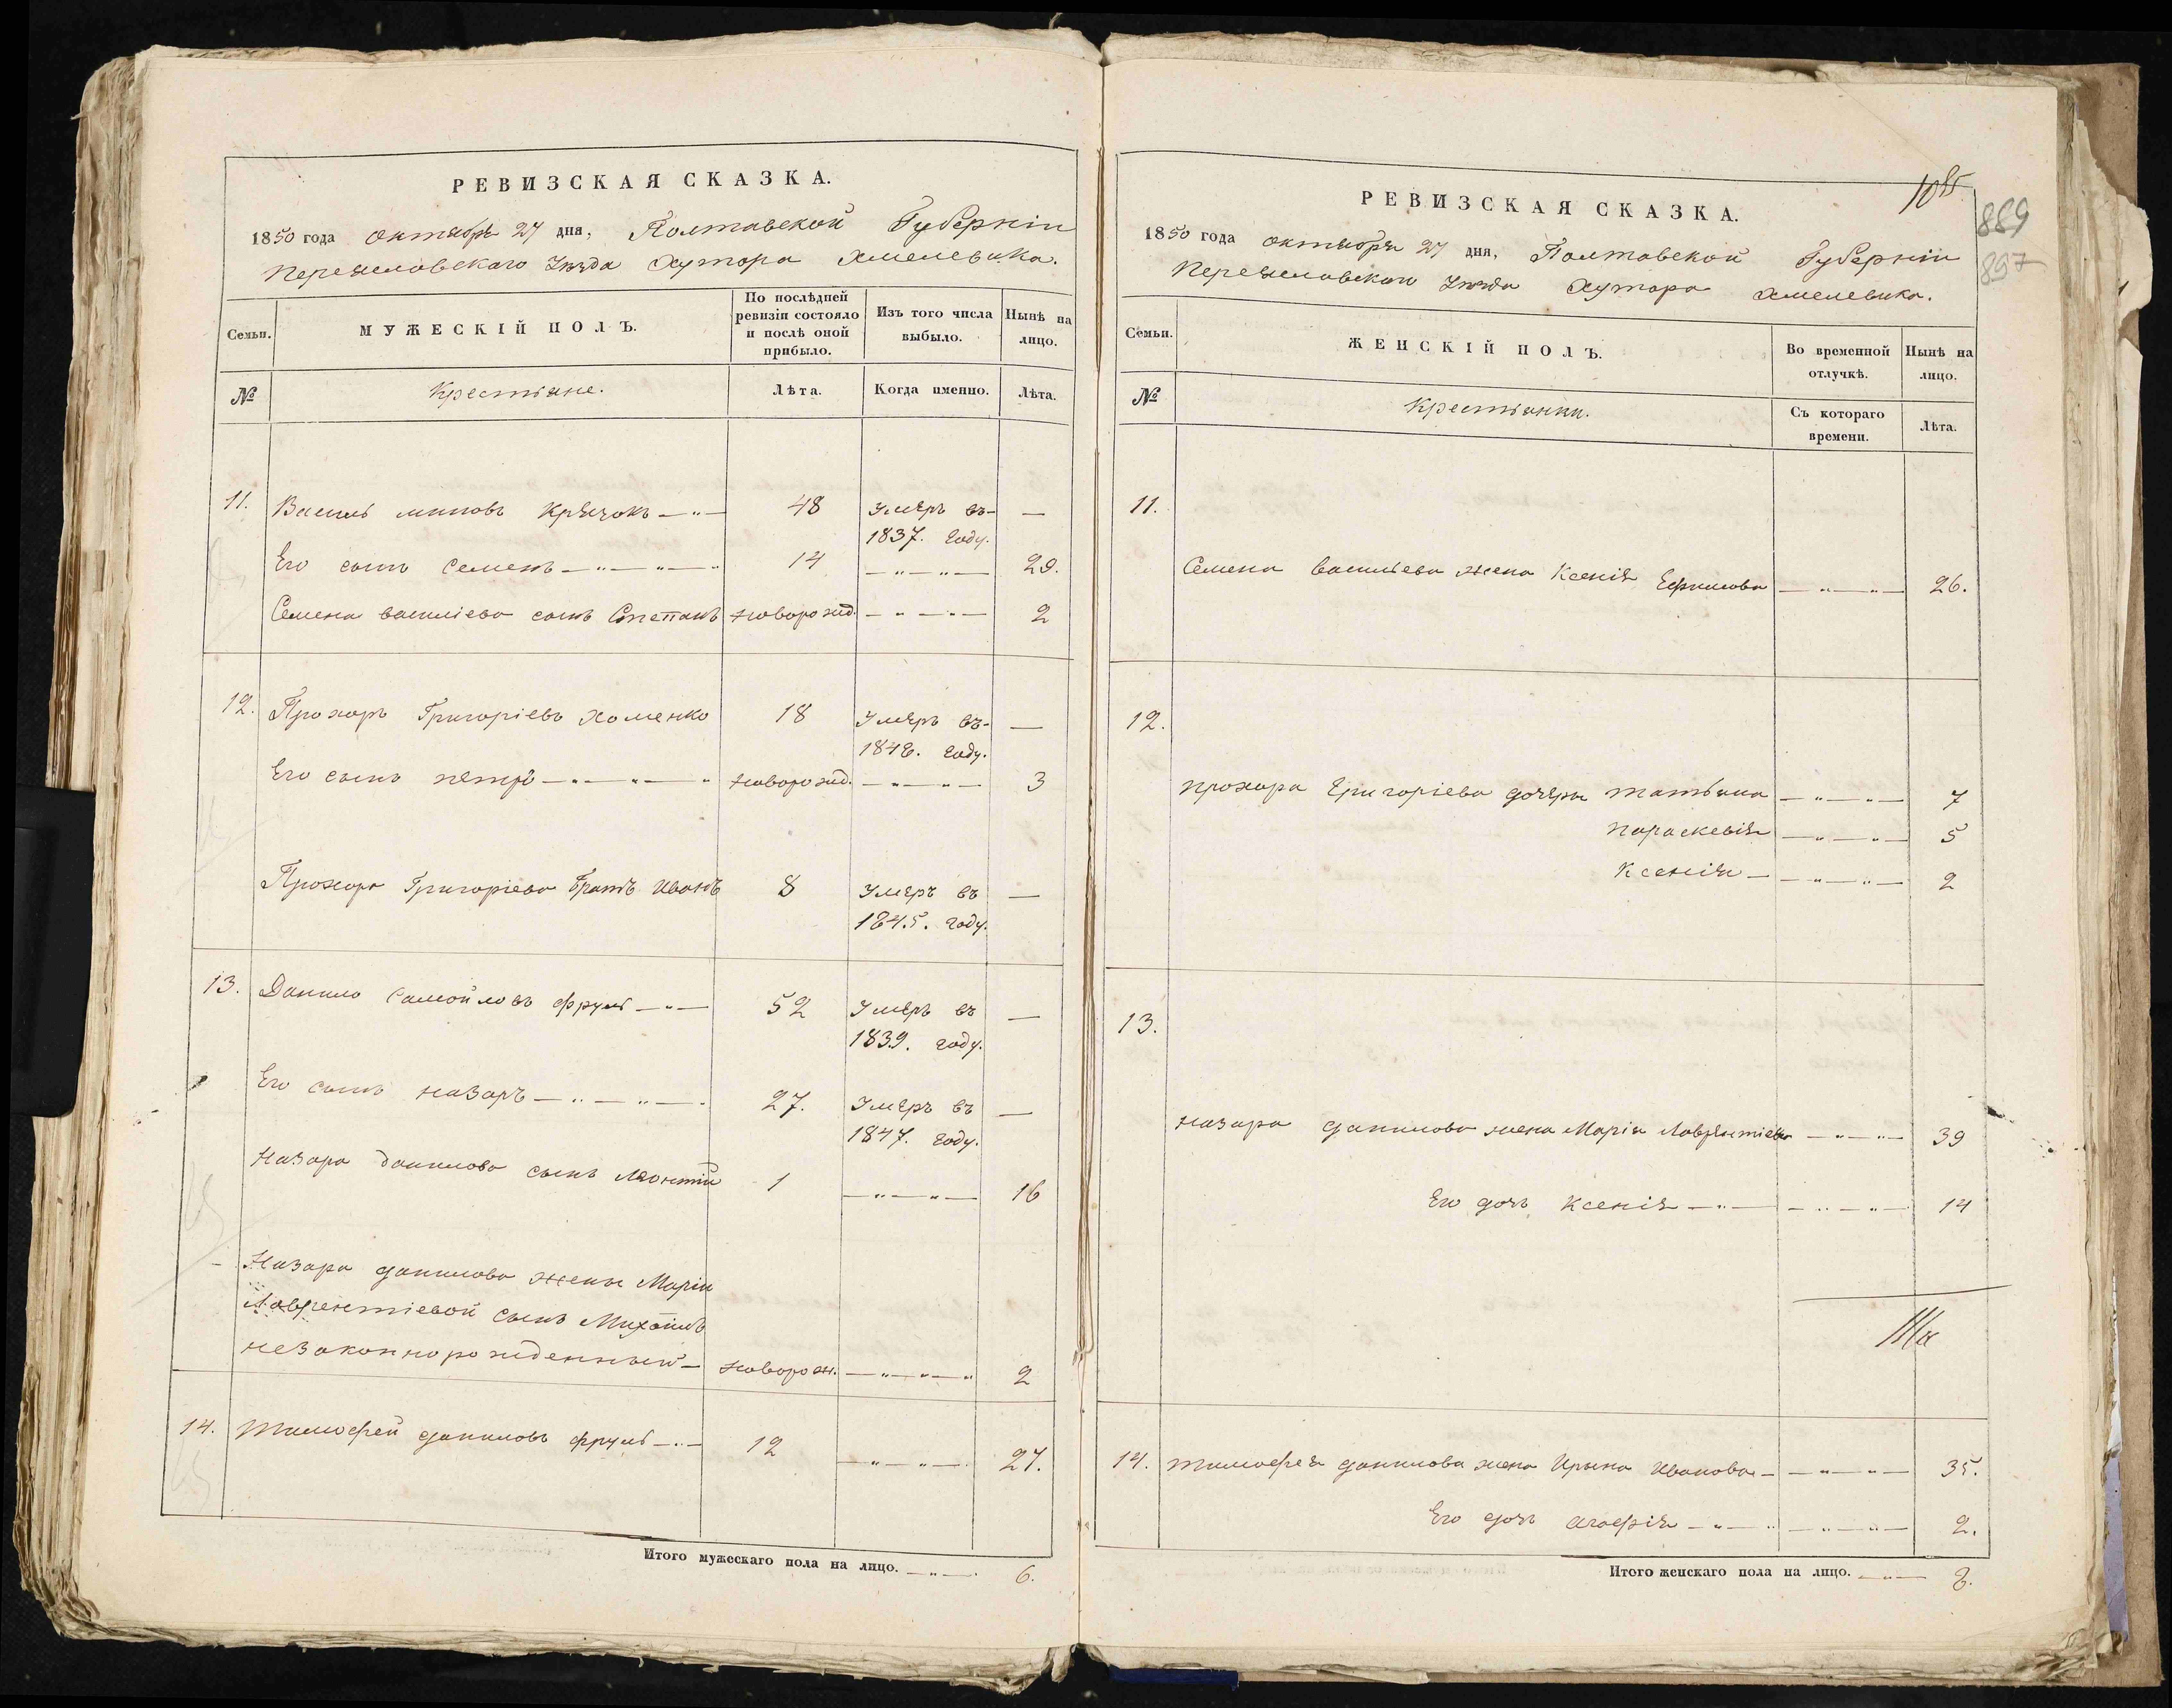 РЕВИЗСКАЯ СКАЗКА.
1850 года октября 27 дня, Полтавской Губерніи
Переяславскаго Уѣзда Хутора Хмелевика.
Семьи.
МУЖЕСКІЙ ПОЛЪ.
По послѣдней ревизіи состояло и послѣ оной прибыло.
Изъ того числа выбыло.
Нынѣ на лицо.
№
Крестьяне.
Лѣта.
Когда именно.
Лѣта.
11. Василь Крячокъ 48 Умеръ въ —
1837. году.
Его сынъ Семенъ 14 — 29.
Семена василіева сынъ Степанъ новорожд. — 2
12. Прохоръ Григоріевъ Хоменко 18 Умеръ въ —
1848. году.
Его сынъ петръ новорожд. — 3
Прохора Григоріева братъ Иванъ 8 Умеръ въ —
1845. году.
13. Данило Самойловъ фруль 52 Умеръ въ —
1839. году.
Его сынъ назаръ 27. Умеръ въ —
1847. году.
Назара данилова сынъ Леонтій 1 — 16
Назара данилова жены Маріи
Лаврентіевой сынъ Михаилъ
незаконнорожденный новорож. — 2
14. тимофей даниловъ фруль 12 — 27.
Итого мужескаго пола на лицо. 6.
1085
889
897
РЕВИЗСКАЯ СКАЗКА.
1850 года октября 27 дня, Полтавской Губерніи
Переяславскаго Уѣзда Хутора Хмелевика.
Семьи.
ЖЕНСКІЙ ПОЛЪ.
Во временной отлучкѣ.
Нынѣ на лицо.
№
Крестьянки.
Съ котораго времени.
Лѣта.
11.
Семена васильева жена Ксенія Ефимова — 26.
12.
прохора Григоріева дочери татьяна — 7
параскевія — 5
Ксенія — 2
13.
назара данилова жена Марія Лаврентіева — 39
Его дочь Ксенія — 14
14. тимофея данилова жена Ирина Иванова — 35.
Его дочь агафія — 2.
Итого женскаго пола на лицо. 8.